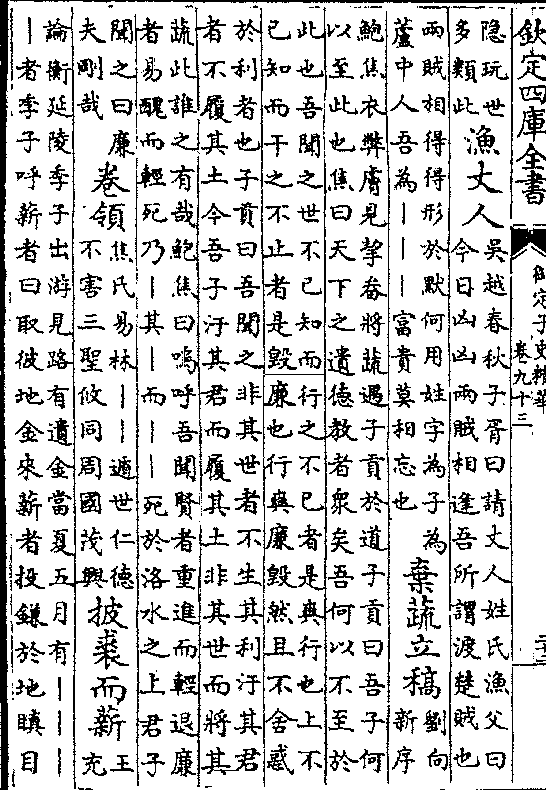 欽定四庫全書
御定子史精華
卷九十三
隱玩世
多類此
漁丈人
吳越春秋子胥曰請丈人姓氏漁父曰
今日凶凶兩賊相逢吾所謂渡楚賊也
兩賊相得得形於默何用姓字為子為
蘆中人吾為｜｜｜富貴莫相忘也
棄蔬立槁
劉向
新序
鮑焦衣弊膚見挈畚將蔬遇子貢於道子貢曰吾子何
以至此也焦曰天下之遺德教者衆矣吾何以不至於
此也吾聞之世不已知而行之不已者是爽行也上不
已知而干之不止者是毀廉也行爽廉毀然且不舍惑
於利者也子貢曰吾聞之非其世者不生其利汙其君
者不履其土今吾子汙其君而履其土非其世而將其
蔬此誰之有哉鮑焦曰嗚呼吾聞賢者重進而輕退廉
者易醜而輕死乃｜其｜而｜｜｜死於洛水之上君子
聞之曰廉
夫剛哉
卷領
焦氏易林｜｜遁世仁德
不害三聖攸同周國茂興
披裘而薪
王
充
論衡延陵季子出游見路有遺金當夏五月有｜｜｜
｜者季子呼薪者曰取彼地金來薪者投鎌於地瞋目